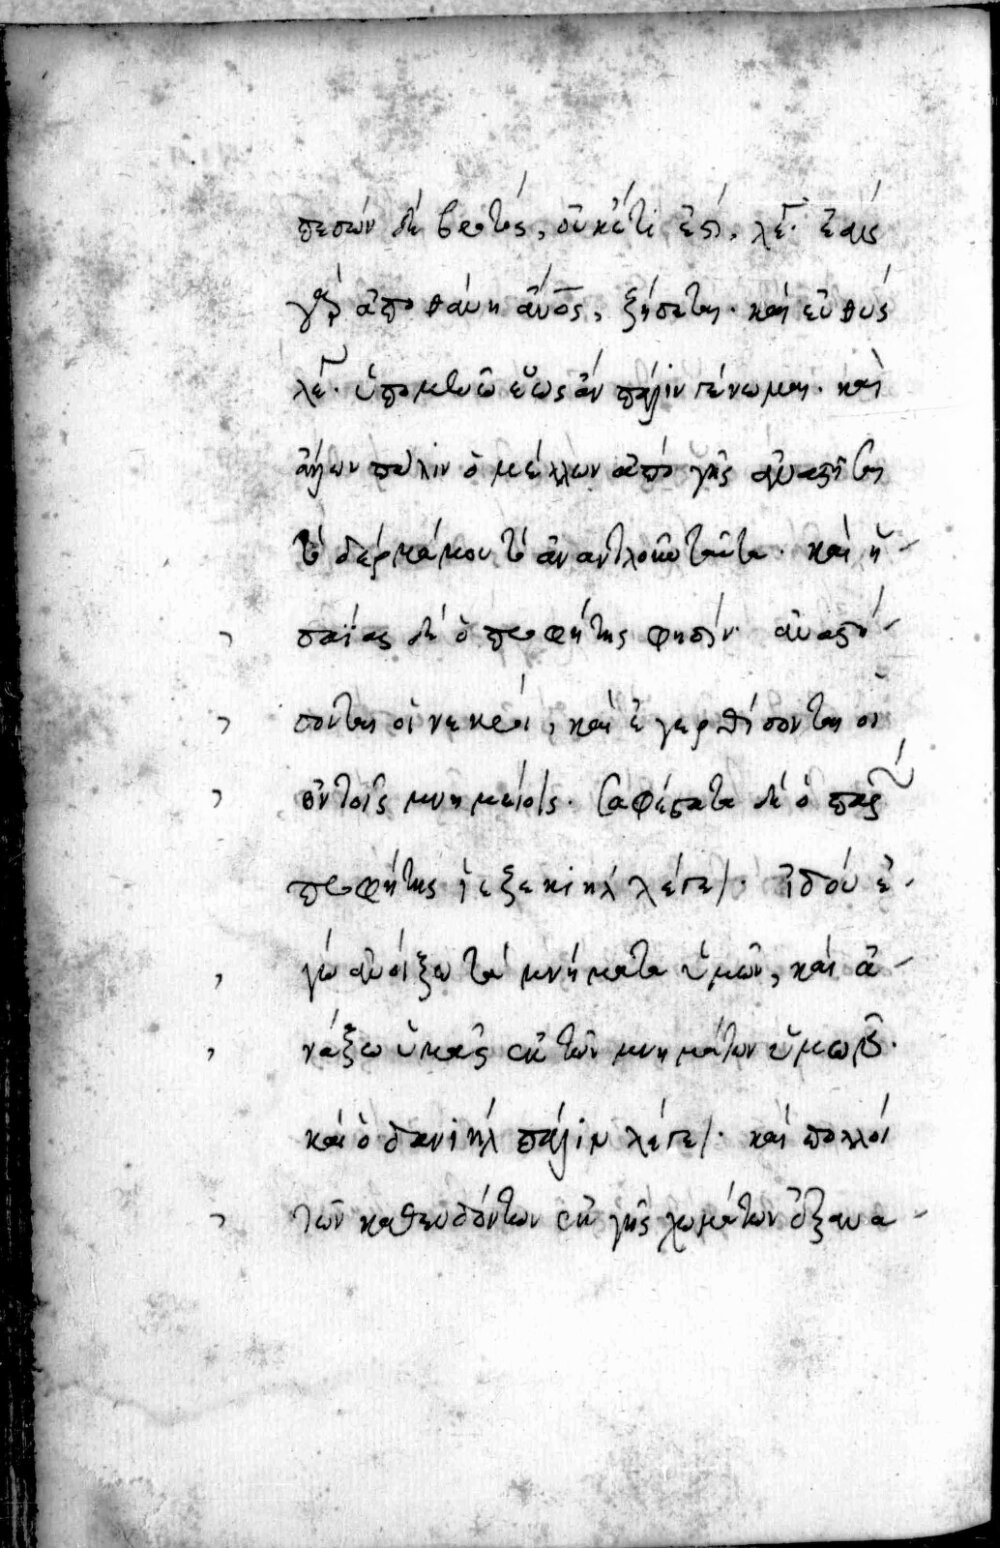 πεσὼν δὲ βροτὸς, οὐκέτι ἐστί, λέγει· ἐὰν
γὰρ ἀποθάνη ἄνος, ζήσεται· καὶ εὐθὺς
λέγει· ὑπομενῶ ἕως ἂν πάλιν γένωμαι· καὶ
πάλιν ὁ μέλλων ἀπὸ γῆς ἀναστῆσαι
τὸ δέρμα μου τὸ ἀναντλοῦν ταῦτα· καὶ ἡ-
σαΐας δὲ ὁ προφήτης φησίν· ἀναστή-
σονται οἱ νεκροί, καὶ ἐγερθήσονται οἱ
ἐν τοῖς μνημείοις. Σαφέστατα δὲ ὁ
προφήτης ἰεζεκιὴλ λέγει· ἰδοὺ ἐ-
γὼ ἀνοίξω τὰ μνήματα ὑμῶν, καὶ ἀ-
νάξω ὑμᾶς ἐκ τῶν μνημάτων ὑμῶν.
καὶ ὁ δανιὴλ πάλιν λέγει· καὶ πολλοὶ
τῶν καθευδόντων ἐκ γῆς χωμάτων ἐξανα-